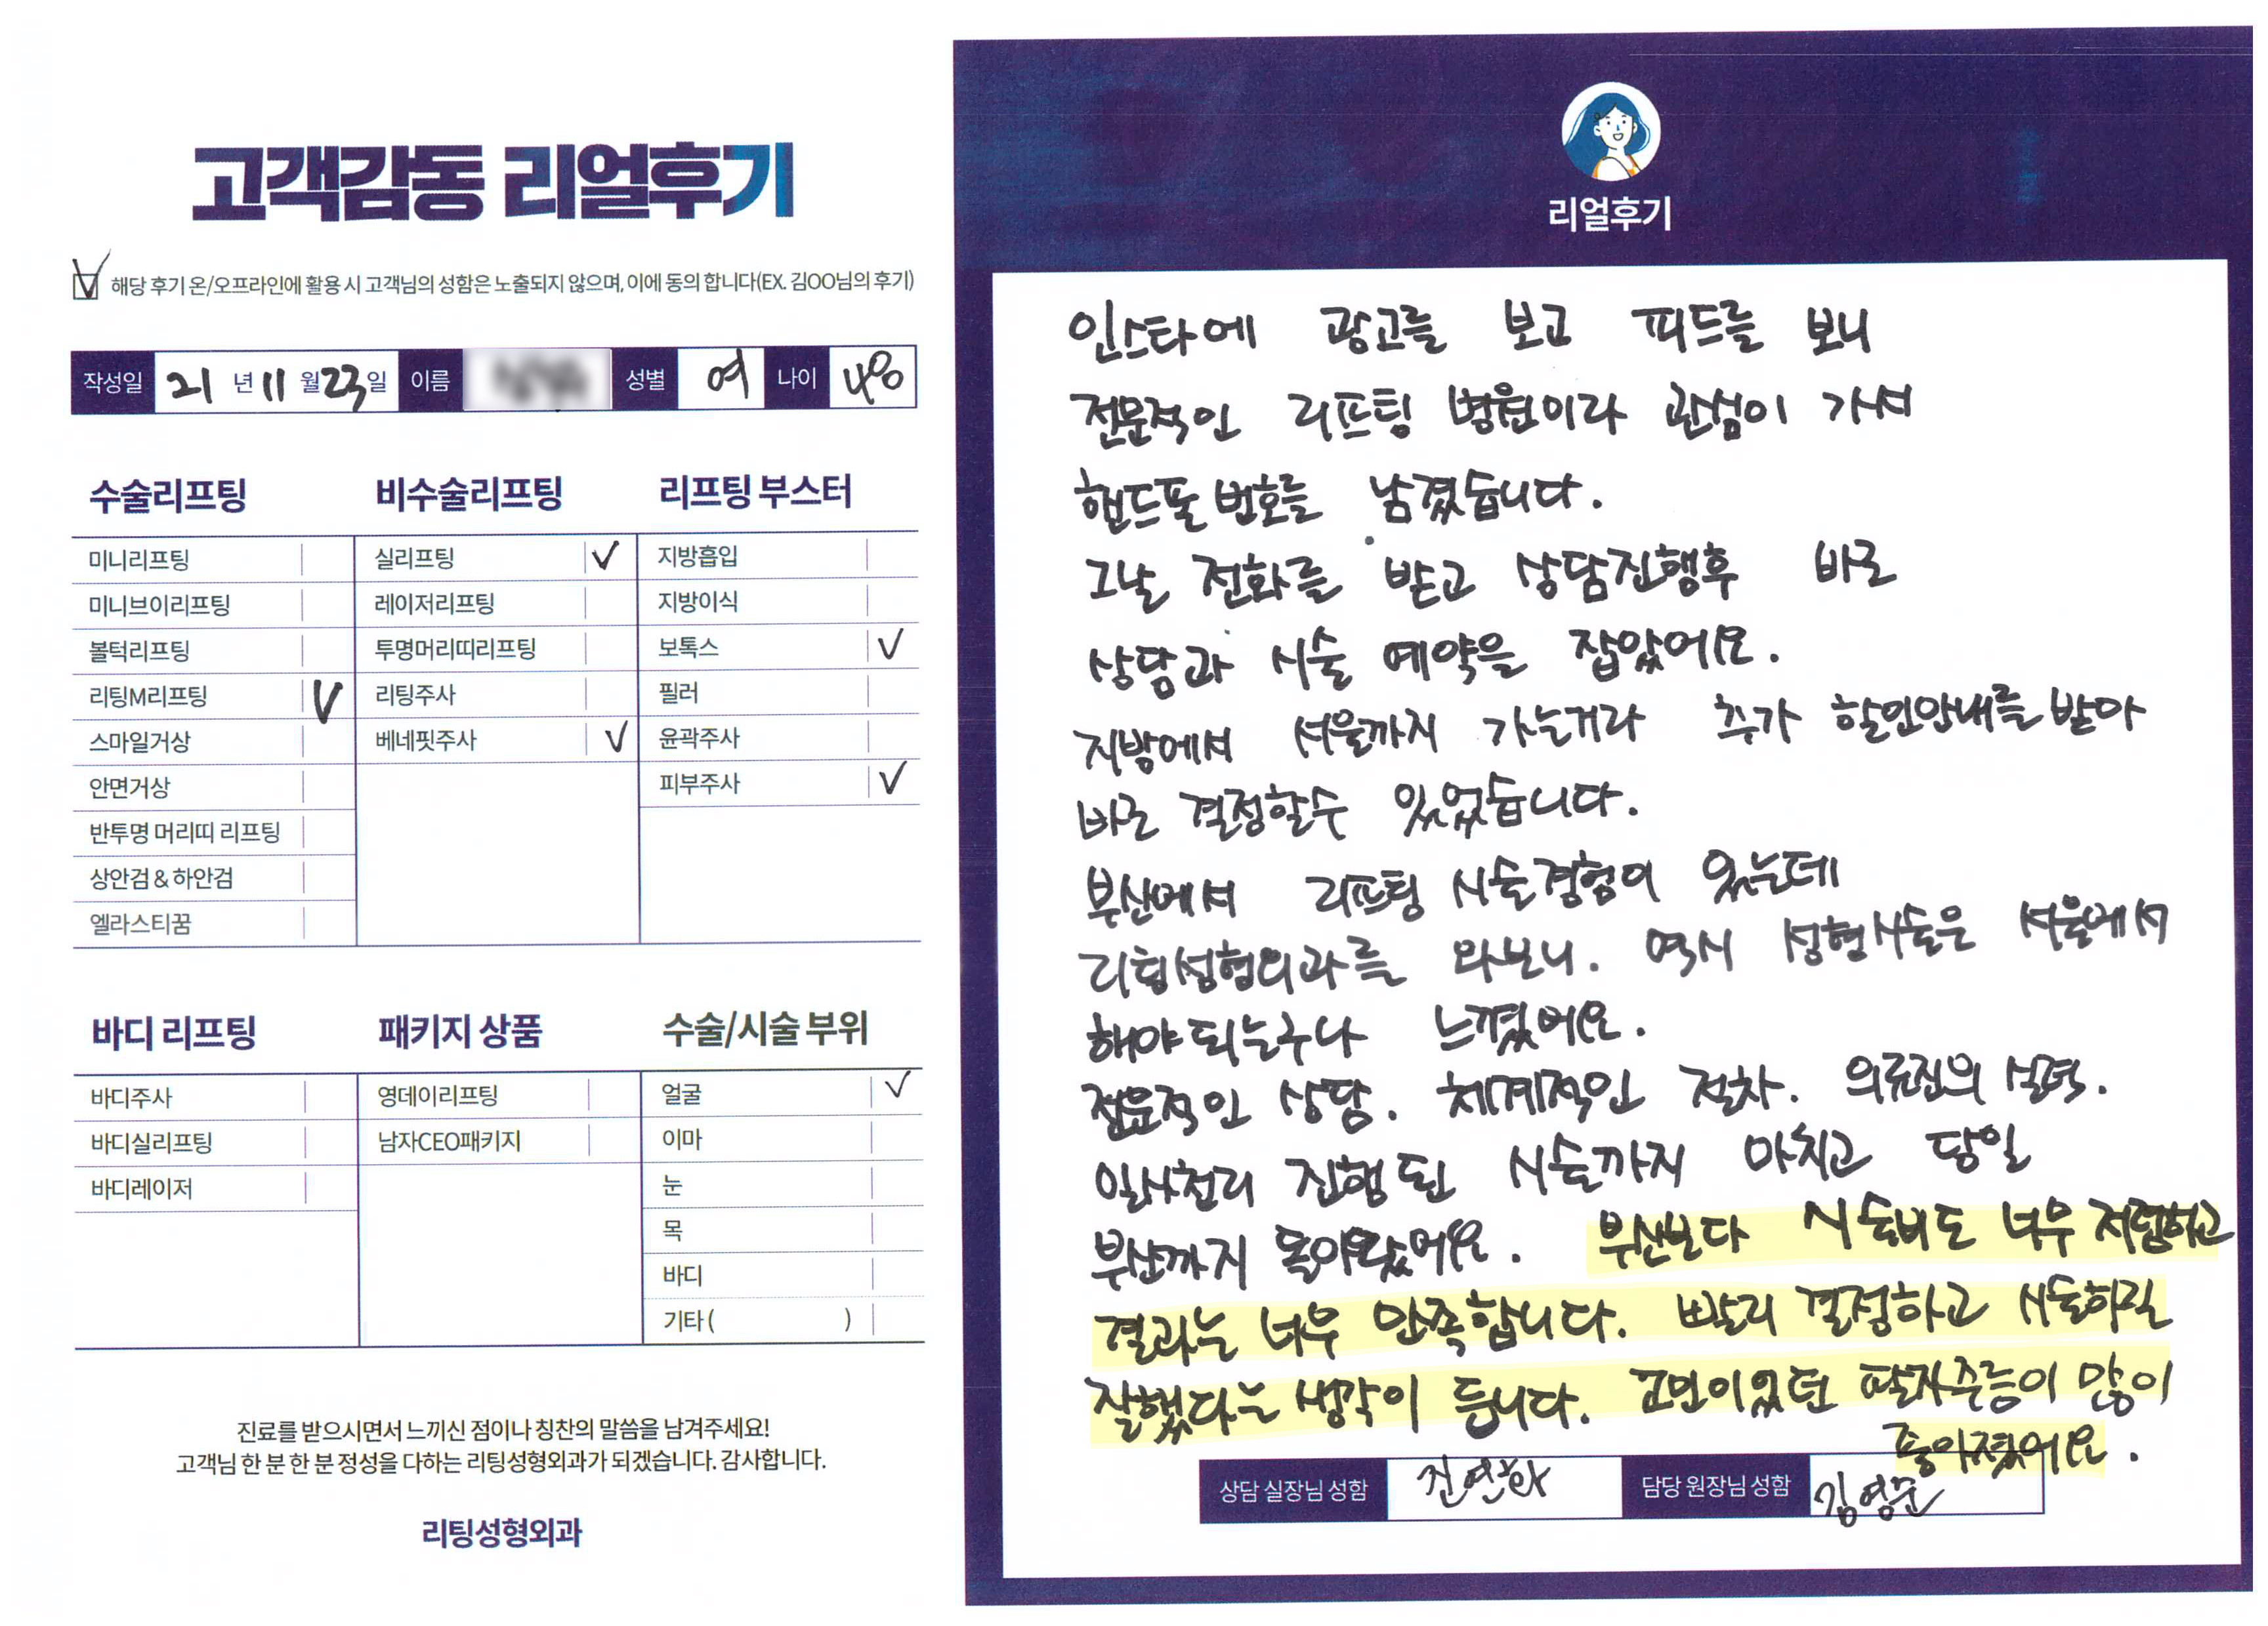 고객감동 리얼후기
해당 후기 온/오프라인에 활용 시 고객님의 성함은 노출되지 않으며, 이에 동의 합니다(EX. 김OO님의 후기)
작성일 21 년 11 월 23 일 이름 성별 여 나이 48
수술리프팅
미니리프팅
미니브이리프팅
볼턱리프팅
리팅M리프팅
스마일거상
안면거상
반투명 머리띠 리프팅
상안검 & 하안검
엘라스티꿈
비수술리프팅
실리프팅
레이저리프팅
투명머리띠리프팅
리팅주사
베네핏주사
리프팅 부스터
지방흡입
지방이식
보톡스
필러
윤곽주사
피부주사
바디 리프팅
바디주사
바디실리프팅
바디레이저
패키지 상품
영데이리프팅
남자CEO패키지
수술/시술 부위
얼굴
이마
눈
목
바디
기타 ( )
진료를 받으시면서 느끼신 점이나 칭찬의 말씀을 남겨주세요!
고객님 한 분 한 분 정성을 다하는 리팅성형외과가 되겠습니다. 감사합니다.
리팅성형외과
리얼후기
인스타에 광고를 보고 피드를 보니
전문적인 리프팅 병원이라 관심이 가서
핸드폰 번호를 남겼습니다.
그날 전화를 받고 상담진행후 바로
상담과 시술 예약을 잡았어요.
지방에서 서울까지 가는거라 추가 할인안내를 받아
바로 결정할수 있었습니다.
부산에서 리프팅 시술경험이 있는데
리팅성형외과를 와보니. 역시 성형시술은 서울에서
해야 되는구나 느꼈어요.
전문적인 상담. 체계적인 절차. 의료진의 실력.
일사천리 진행된 시술까지 마치고 당일
부산까지 돌아왔어요. 부산보다 시술비도 너무 저렴하고
결과는 너무 만족합니다. 빨리 결정하고 시술하길
잘했다는 생각이 듭니다. 고민이었던 팔자주름이 많이
좋아졌어요.
상담 실장님 성함 전연화 담당 원장님 성함 김영준